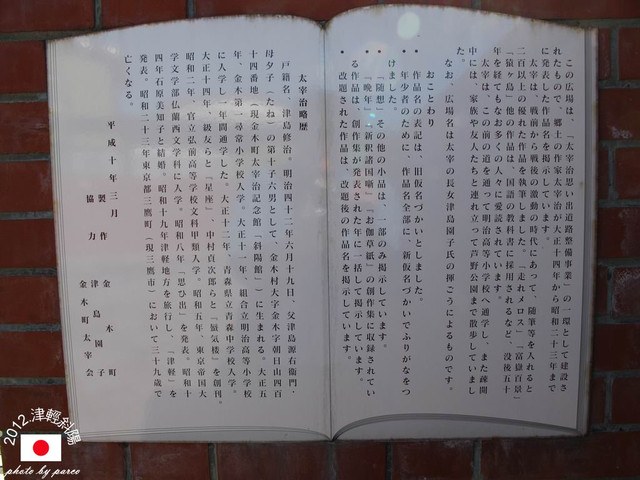 この広場は、「太宰治思い出道路整備事業」の一環として建設さ
れたもので、郷土の作家太宰治が大正十四年から昭和二十三年まで
に発表した作品名を掲示しています。
太宰治は、戦前から戦後の激動の時代にあって、随筆等を入れると
二百以上の優れた作品を執筆しました。「走れメロス」「富嶽百景」
「猿ヶ島」他の作品は、国語の教科書に採用されるなど、没後五十
年を経てもなお多くの人々に愛読されています。
太宰は、この前の道を通って明治高等小学校へ通学し、また疎開
中には、家族や友人たちと連れ立って芦野公園まで散歩していまし
た。
なお、広場名は太宰の長女津島園子氏の揮ごうによるものです。
おことわり
• 作品名の表記は、旧仮名づかいとしました。
年少者のために、作品名全部に、新仮名づかいでふりがなをつ
けました。
• 「随想」その他の小品は、一部のみ掲示しています。
• 「晩年」「新釈諸国噺」「お伽草紙」の創作集に収録されてい
る作品は、創作集が発表された年に一括して掲示しています。
• 改題された作品は、改題後の作品名を掲示しています。
太宰治略歴
戸籍名、津島修治。明治四十二年六月十九日、父津島源右衛門・
母夕子（たね）の第十子六男として、金木村大字金木字朝日山四百
十四番地（現金木町太宰治記念館「斜陽館」）に生まれる。大正五
年、金木第一尋常小学校入学。大正十一年、組合立明治高等小学校
に入学し一年間通学した。大正十二年、青森県立青森中学校入学。
大正十四年、級友らと「星座」、中村貞次郎らと「蜃気楼」を創刊。
昭和二年、官立弘前高等学校文科甲類入学。昭和五年、東京帝国大
学文学部仏蘭西文学科に入学。昭和八年「思ひ出」を発表。昭和十
四年石原美知子と結婚。昭和十九年津軽地方を旅行し、「津軽」を
発表。昭和二十三年東京都三鷹町（現三鷹市）において三十九歳で
亡くなる。
平成十年三月
製作 金木町
協力 津島園子
金木町太宰会
2012.津輕斜陽
photo by parco